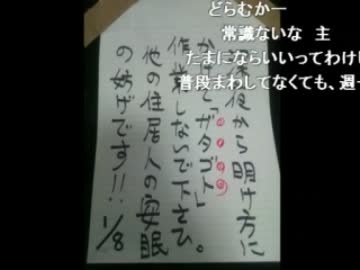 どらむかー
常識ないな　主
たまにならいいってわけ
普段まわしてなくても、週一
深夜から明け方に
かけて「ガタゴト」
作業しないで下さい。
他の住居人の安眠
の妨げです!!
1/8